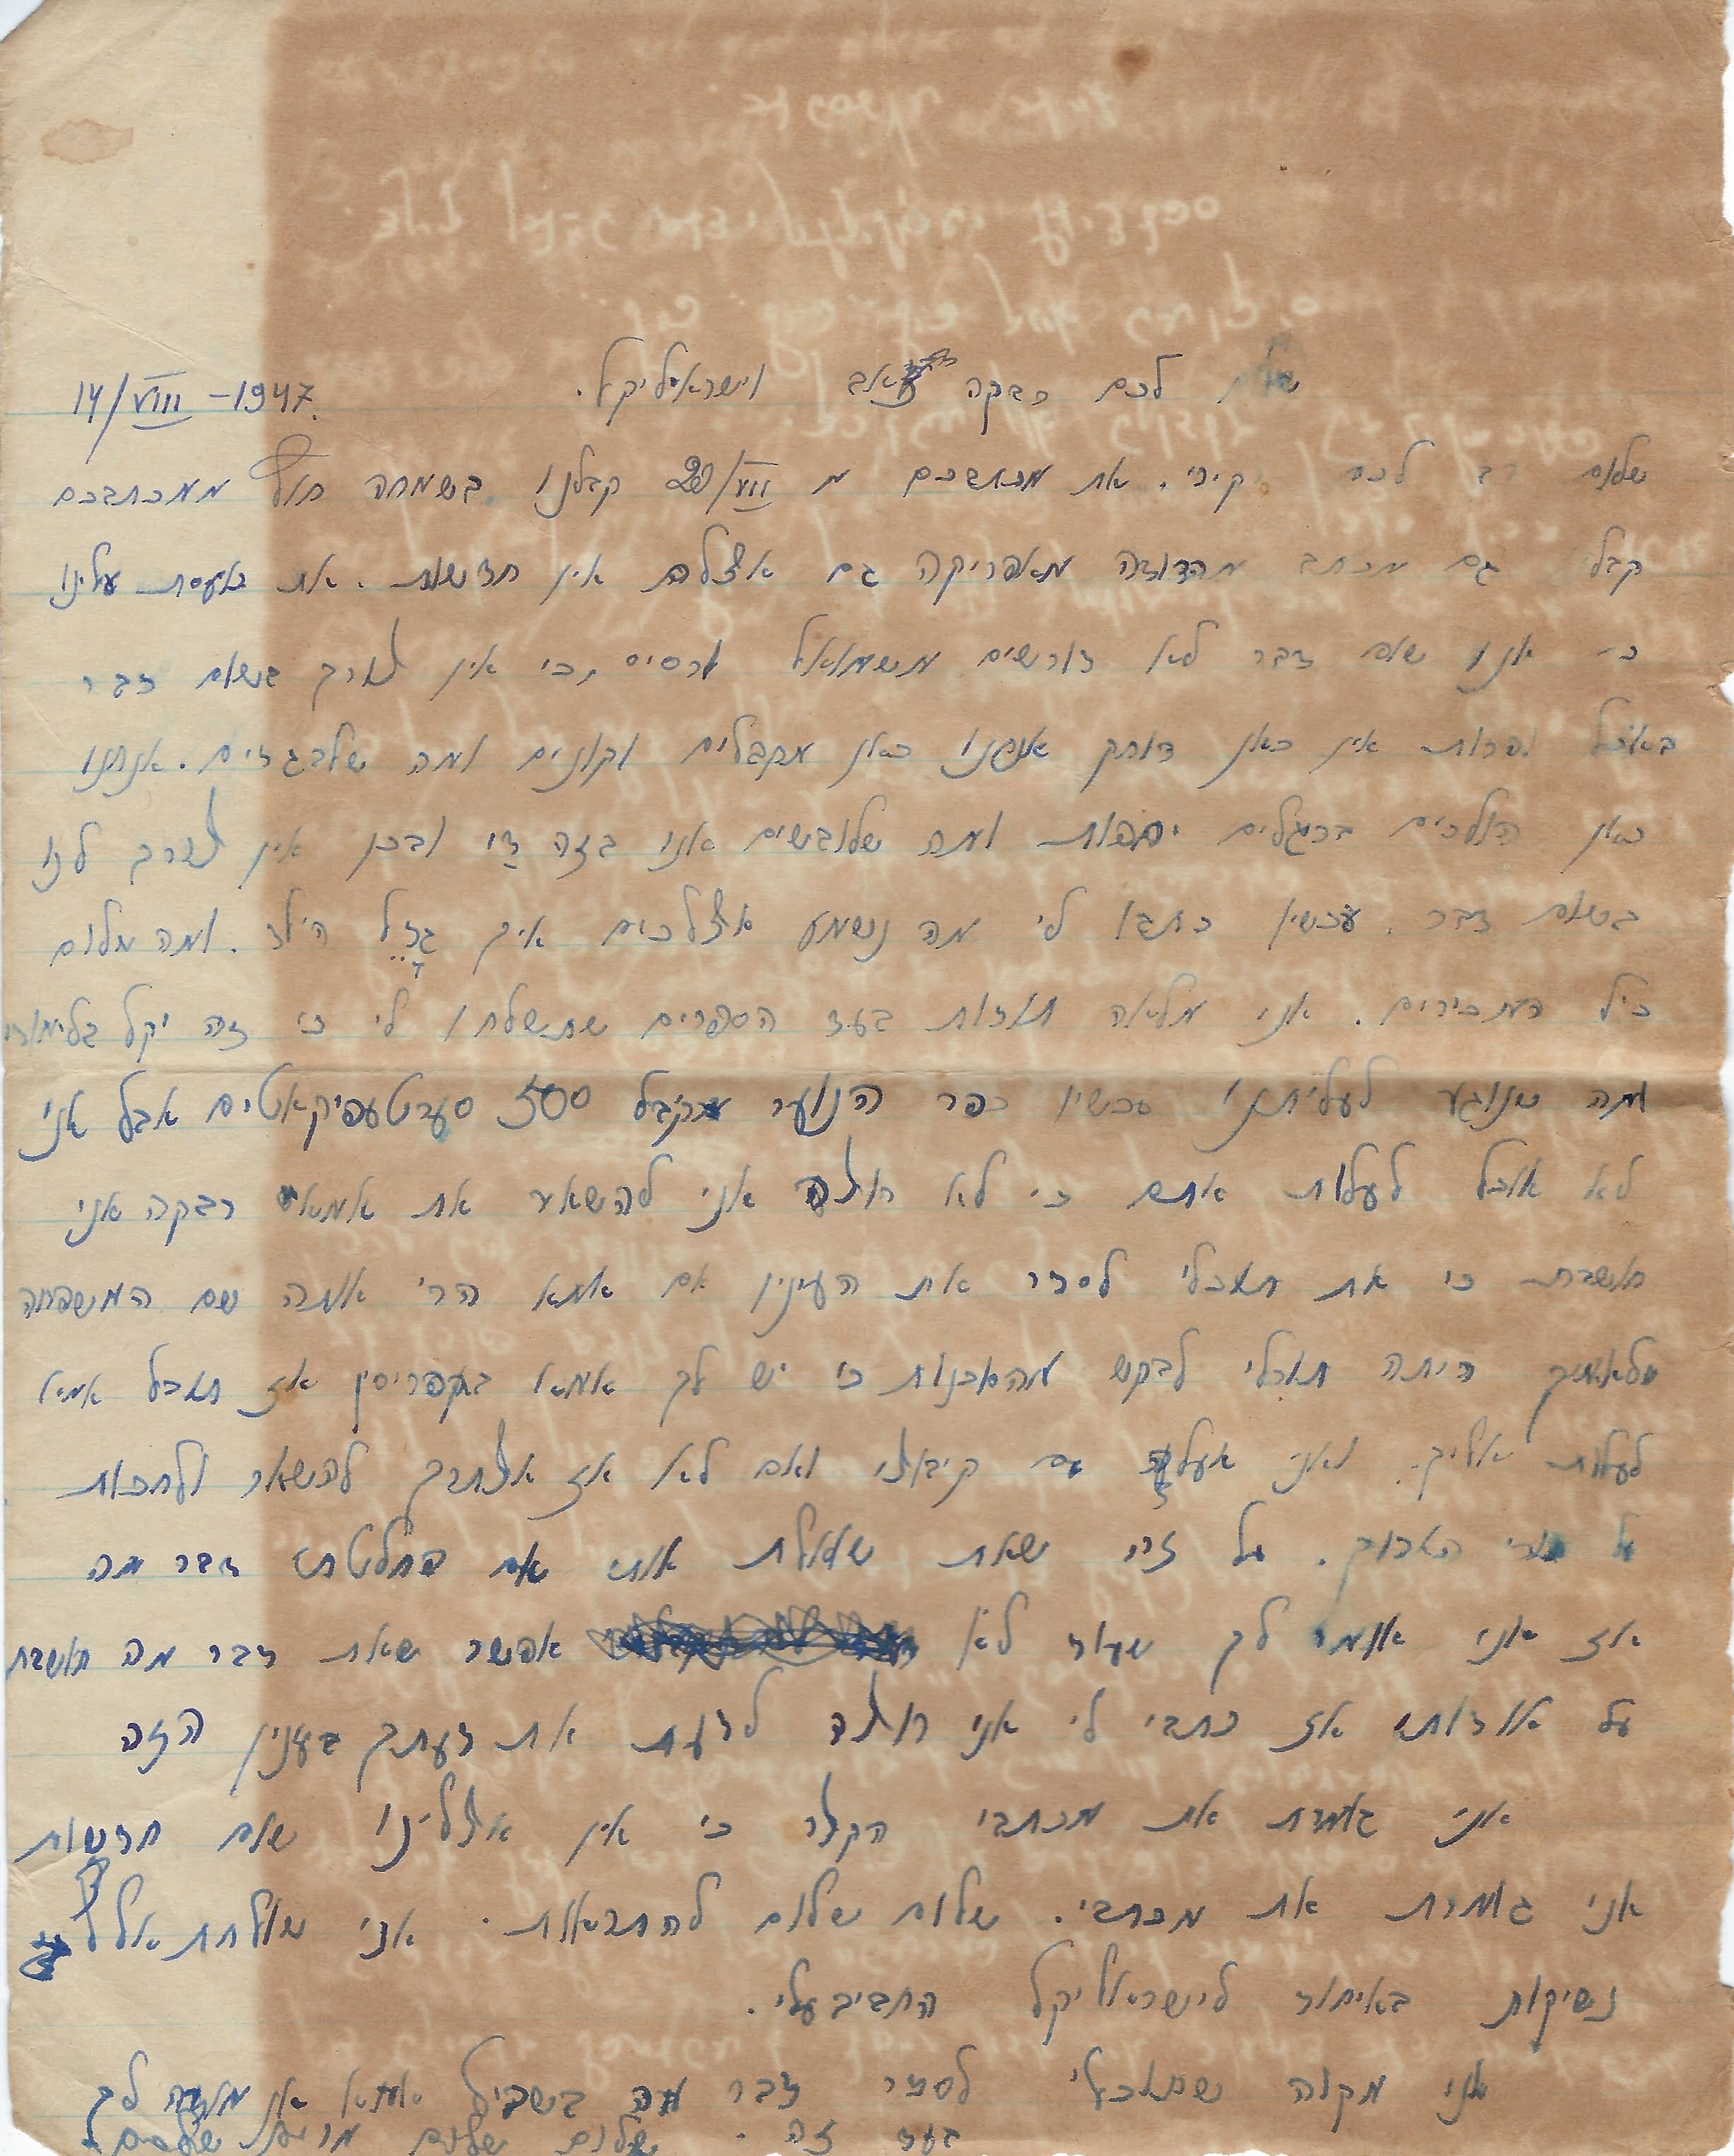 שלום לכם רבקה זאב וישראליקל. 14/VIII-1947.
שלום רב לכם יקירי. את מכתבכם מ 20/VII קבלנו בשמחה חוץ ממכתבכם
קבלתי גם מכתב מהדודה מאפריקה גם אצלם אין חדשות. את כועסת עלינו
כי אנו שום דבר לא דורשים משמואל וסיס, כי אין צורך בשום דבר
באוכל ופרות אין כאן דוחק אנחנו כאן מקבלים וקונים ומה שלבגדים. אנחנו
כאן הולכים ברגלים יחפות ומה שלובשים אנו בזה די ובכן אין צורך לנו
בשום דבר. עכשיו כתבו לי מה נשמע אצלכם איך גדל הילד. ומה שלום
כל המכירים. אני מלאה תודות בעד הספרים שתשלחו לי כי זה יקל בלימודי
ומה שנוגע לעליתנו עכשיו כפר הנוער מקבל 500 סערטעפיקאטים אבל אני
לא אוכל לעלות אתם כי לא רוצה אני להשאיר את אמא רבקה אני
חושבת כי את תוכלי לסדר את הענין אם אמא הרי אותה שם המשפחה
שלאמך היתה תוכלי לבקש מהסוכנות כי יש לך אמא בקפריסין אז תוכל אמא
לעלות אליך. ואני אעלה עם קיבוצי ואם לא אז אצתרך להשאר ולחכות
על תורי הארוך. על זה שאת שואלת אותי אם החלטתי דבר מה
אז אני אומר לך שעוד לא אפשר שאת דבר מה חושבת
על אודותי אז כתבי לי אני רוצה לדעת את דעתך בענין הזה
אני גומרת את מכתבי הקצר כי אין אצלינו שום חדשות
אני גומרת את מכתבי. שלום שלום להתראות. אני שולחת אלף
נשיקות באיחוד לישראליקל החביב עלי.
אני מקוה שתוכלי לסדר דבר מה בשביל אמא אני מודה לך
בעד זה. שלום שלום